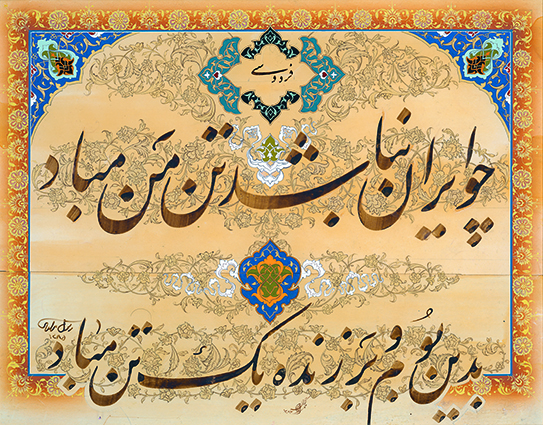 فردوسی
چو ایران نباشد تن من مباد
بدین بوم و بر زنده یک تن مباد